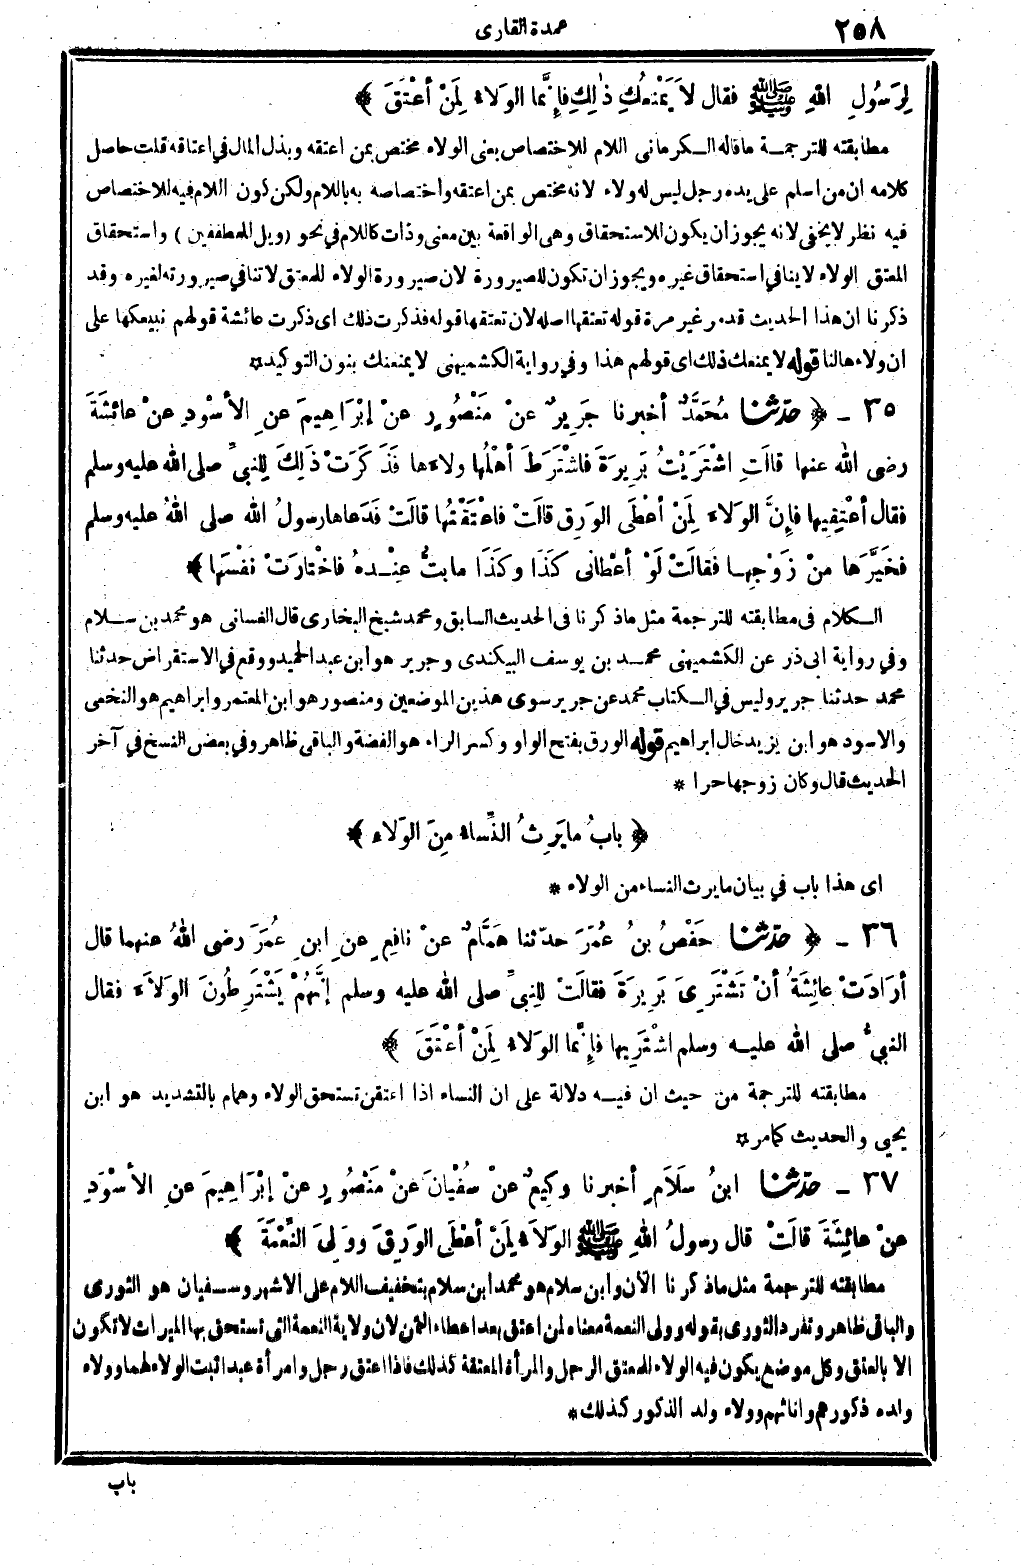 ٢٥٨
عمدة القارى
لِرَسُولِ اللهِ ﷺ فقال لاَ يَمْنَعُكِ ذٰلِكِ فإِنَّما الوَلاءُ لِمَنْ أعْتَقَ ﴾
مطابقته للترجمـة ماقاله الـكرمانى اللام للاختصاص يعنى الولاء مختص بمن اعتقه وبذل المال في اعتاقه قلت حاصل
كلامه ان من اسلم على يده رجل ليس له ولاء لانه مختص بمن اعتقه واختصاصه به باللام ولكن كون اللام فيه للاختصاص
فيه نظر لا يخفى لانه يجوز أن يكون للاستحقاق وهى الواقعة بين معنى وذات كاللام في نحو (ويل للمطففين) واستحقاق
المعتق الولاء لا ينافي استحقاق غيره ويجوز ان تكون للصيرورة لان صيرورة الولاء للمعتق لا تنافي صيرورته لغيره وقد
ذكرنا ان هذا الحديث قد مر غير مرة قوله تعتقها اصله لان تعتقها قوله فذكرت ذلك اى ذكرت عائشة قولهم نبيعكها على
ان ولاءها لنا قوله لا يمنعك ذلك اى قولهم هذا وفي رواية الكشميهنى لا يمنعنك بنون التوكيد ¤
٣٥ ـ ﴿ حدّثنا مُحَمَّدٌ أخبرنا جَرِيرٌ عنْ مَنْصُورٍ عنْ إبْرَاهِيمَ عنِ الأسْوَدِ عنْ عائشَةَ
رضى الله عنها قالَتِ اشْتَرَيْتُ بَرِيرَةَ فاشْتَرَطَ أهْلُها ولاءَها فَذَكَرَتْ ذَلِكَ لِلنبيِّ صلى الله عليه وسلم
فقال أعْتِقِيها فإِنَّ الوَلاءَ لِمَنْ أعْطَى الوَرِقَ قالَتْ فأعْتَقْتُها قالَتْ فَدَعاها رسولُ الله صلى اللهُ عليه وسلم
فخَيَّرَها منْ زَوْجِهـا فقالَتْ لوْ أعْطانى كَذَا وكَذَا ما بتُّ عِنْـدهُ فاخْتارَتْ نفْسَها ﴾
الـكلام فى مطابقته للترجمة مثل ما ذكرنا فى الحديث السابق ومحمد شيخ البخارى قال الغسانى هو محمد بن سـلام
وفي رواية ابى ذر عن الكشميهنى محمـد بن يوسف البيكندى وجرير هو ابن عبد الحميد ووقع في الاستقراض حدثنا
محمد حدثنا جرير وليس في الـكتاب محمد عن جرير سوى هذين الموضعين ومنصور هو ابن المعتمر وابراهيم هو النخعى
والاسود هو ابن يزيد خال ابراهيم قوله الورق بفتح الواو وكسر الراء هو الفضة والباقى ظاهر وفي بعض النسخ في آخر
الحديث قال وكان زوجها حرا *
﴿ بابُ ما يَرِثُ النِّساءُ مِنَ الوَلاءِ ﴾
اى هذا باب في بيان ما يرث النساء من الولاء *
٣٦ ـ ﴿ حدّثنا حَفْصُ بنُ عُمَرَ حدّثنا هَمَّامٌ عنْ نافِعٍ عنِ ابنِ عُمَرَ رضى اللهُ عنهما قال
أرَادَتْ عائِشَةُ أنْ تَشْتَرِىَ بَرِيرَةَ فقالَتْ لِلنبيِّ صلى الله عليه وسلم إنَّهُمْ يَشْتَرِطُونَ الوَلاَءَ فقال
النبيُّ صلى الله عليـه وسلم اشْتَرِيها فإِنَّما الوَلاءُ لِمَنْ أعْتَقَ ﴾
مطابقته للترجمة من حيث ان فيـه دلالة على ان النساء اذا اعتقن تستحق الولاء وهمام بالتشديد هو ابن
يحيى والحديث كما مر ¤
٣٧ ـ حدّثنا ابنُ سَلَامٍ أخبرنا وكِيعٌ عنْ سُفْيانَ عنْ مَنْصُورٍ عنْ إبْرَاهِيمَ عنِ الأسْوَدِ
عنْ عائِشَةَ قالَتْ قال رسولُ اللهِ ﷺ الوَلاَءُ لِمَنْ أعْطَى الوَرِقَ وَوَلِىَ النِّعْمَةَ ﴾
مطابقته للترجمة مثل ما ذكرنا الآن وابن سلام هو محمد ابن سلام بتخفيف اللام على الاشهر وسـفيان هو الثورى
والباقى ظاهر وتفرد الثورى بقوله وولى النعمة معناه لمن اعتق بعد اعطاء الثمن لان ولاية النعمة التى تستحق بها الميراث لا تكون
الا بالعتق وكل موضع يكون فيه الولاء للمعتق الرجل والمرأة المعتقة كذلك فاذا اعتق رجل وامرأة عبدا ثبت الولاء لهما وولاء
ولده ذكورهم واناثهم وولاء ولد الذكور كذلك *
باب